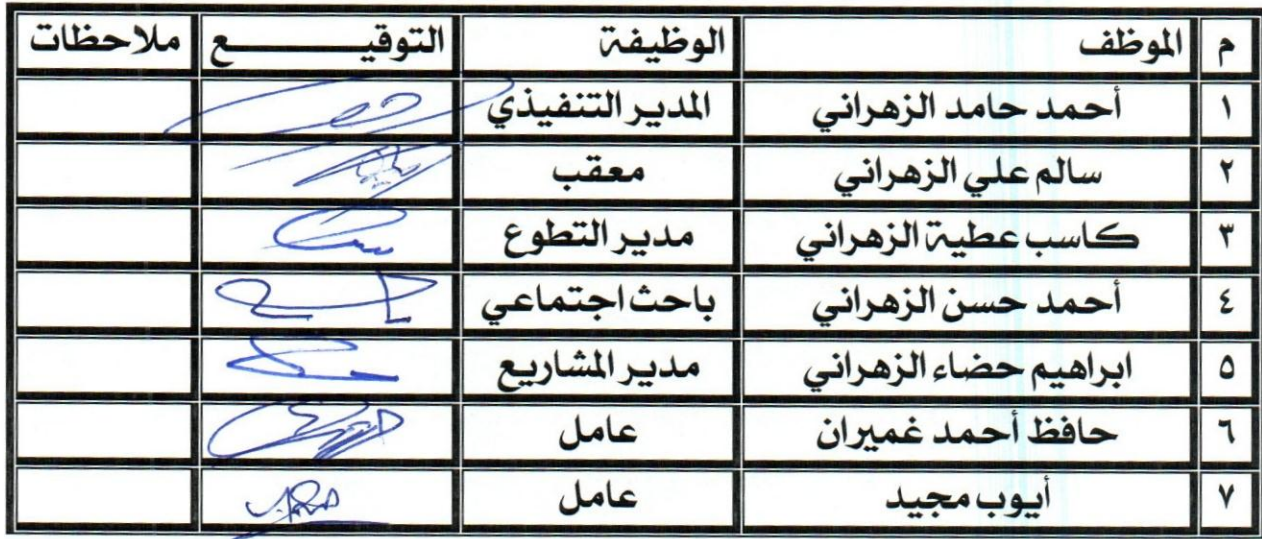 م الموظف الوظيفة التوقيـــــــــع ملاحظات
١ أحمد حامد الزهراني المدير التنفيذي
٢ سالم علي الزهراني معقب
٣ كاسب عطية الزهراني مدير التطوع
٤ أحمد حسن الزهراني باحث اجتماعي
٥ ابراهيم حضاء الزهراني مدير المشاريع
٦ حافظ أحمد غميران عامل
٧ أيوب مجيد عامل